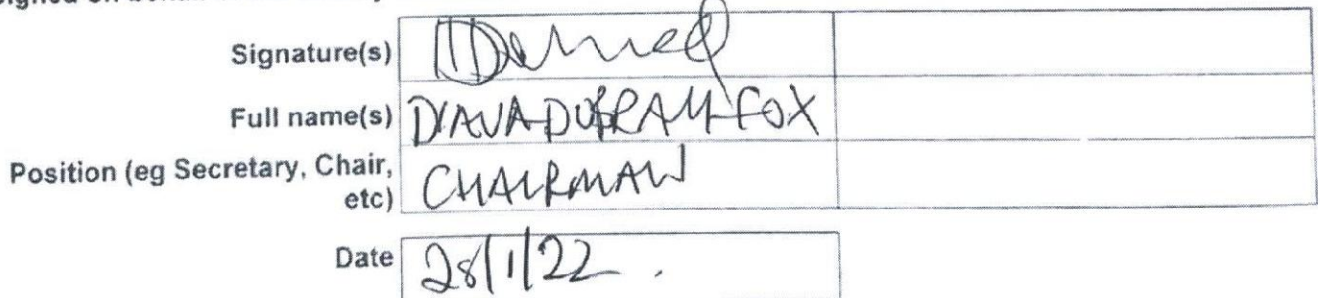 Signature(s)
Full name(s) DIANA DURRAM-FOX
Position (eg Secretary, Chair,
etc) CHAIRMAN
Date 28/1/22 .